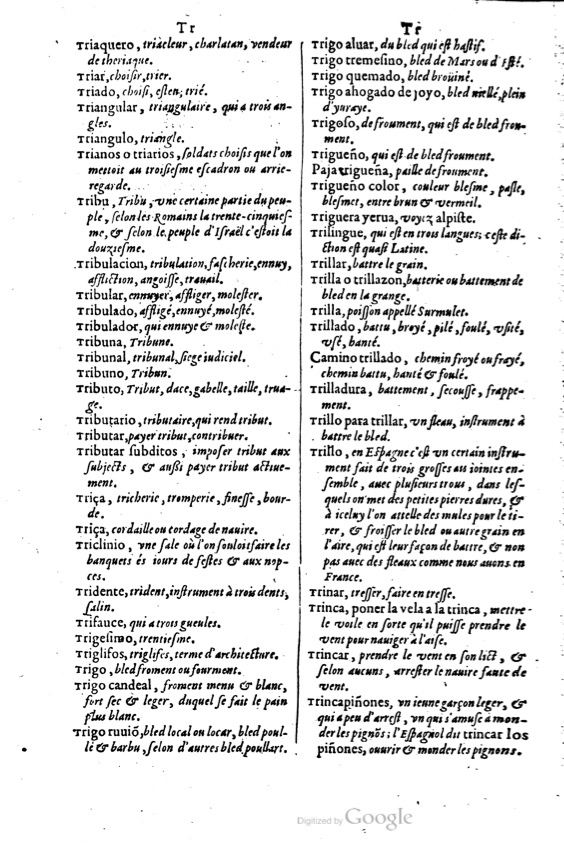 Tr
Triaquero, triacleur, charlatan, vendeur
de theriaque.
Triar, choisir, trier.
Triado, choisi, esleu, trié.
Triangular, triangulaire, qui a trois an-
gles.
Triangulo, triangle.
Trianos o triarios, soldats choisis que l'on
mettoit au troisiesme escadron ou arrie-
regarde.
Tribu, Tribu, vne certaine partie du peu-
ple, selon les Romains la trente-cinquies-
me, & selon le peuple d'Israël c'estoit la
douziesme.
Tribulacion, tribulation, fascherie, ennuy,
affliction, angoisse, trauail.
Tribular, ennuyer, affliger, molester.
Tribulado, affligé, ennuyé, molesté.
Tribulador, qui ennuye & moleste.
Tribuna, Tribune.
Tribunal, tribunal, siege iudiciel.
Tribuno, Tribun.
Tributo, Tribut, dace, gabelle, taille, trua-
ge.
Tributario, tributaire, qui rend tribut.
Tributar, payer tribut, contribuer.
Tributar subditos, imposer tribut aux
subjects, & außi payer tribut actiue-
ment.
Triça, tricherie, tromperie, finesse, bour-
de.
Triça, cordaille ou cordage de nauire.
Triclinio, vne sale où l'on souloit faire les
banquets és iours de festes & aux nop-
ces.
Tridente, trident, instrument à trois dents,
salin.
Trifauce, qui a trois gueules.
Trigesimo, trentiesme.
Triglifos, triglifes, terme d'architecture.
Trigo, bled froment ou fourment.
Trigo candeal, froment menu & blanc,
fort sec & leger, duquel se fait le pain
plus blanc.
Trigo ruuiõ, bled local ou locar, bled poul-
lé & barbu, selon d'autres bled poullart.
Tr
Trigo aluar, du bled qui est hastif.
Trigo tremesino, bled de Mars ou d'Esté.
Trigo quemado, bled brouiné.
Trigo ahogado de joyo, bled niellé, plein
d'yuraye.
Trigoso, de froument, qui est de bled frou-
ment.
Trigueño, qui est de bled froument.
Paja trigueña, paille de froument.
Trigueño color, couleur blesme, pasle,
blesmet, entre brun & vermeil.
Triguera yerua, voyez alpiste.
Trilingue, qui est en trois langues; ceste di-
ction est quasi Latine.
Trillar, battre le grain.
Trilla o trillazon, batterie ou battement de
bled en la grange.
Trilla, poisson appellé Surmulet.
Trillado, battu, broyé, pilé, foulé, vsité,
vsé, hanté.
Camino trillado, chemin froyé ou frayé,
chemin battu, hanté & foulé.
Trilladura, battement, secousse, frappe-
ment.
Trillo para trillar, vn fleau, instrument à
battre le bled.
Trillo, en Espagne c'est vn certain instru-
ment fait de trois grosses ais iointes en-
semble, auec plusieurs trous, dans les-
quels on met des petites pierres dures, &
à iceluy l'on attelle des mules pour le ti-
rer, & froisser le bled ou autre grain en
l'aire, qui est leur façon de battre, & non
pas auec des fleaux comme nous auons en
France.
Trinar, tresser, faire en tresse.
Trinca, poner la vela a la trinca, mettre
le voile en sorte qu'il puisse prendre le
vent pour nauiger à l'aise.
Trincar, prendre le vent en son lict, &
selon aucuns, arrester le nauire faute de
vent.
Trincapiñones, vn ieune garçon leger, &
qui a peu d'arrest, vn qui s'amuse à mon-
der les pignõs; l'Espagnol dit trincar los
piñones, ouurir & monder les pignons.
Digitized by Google